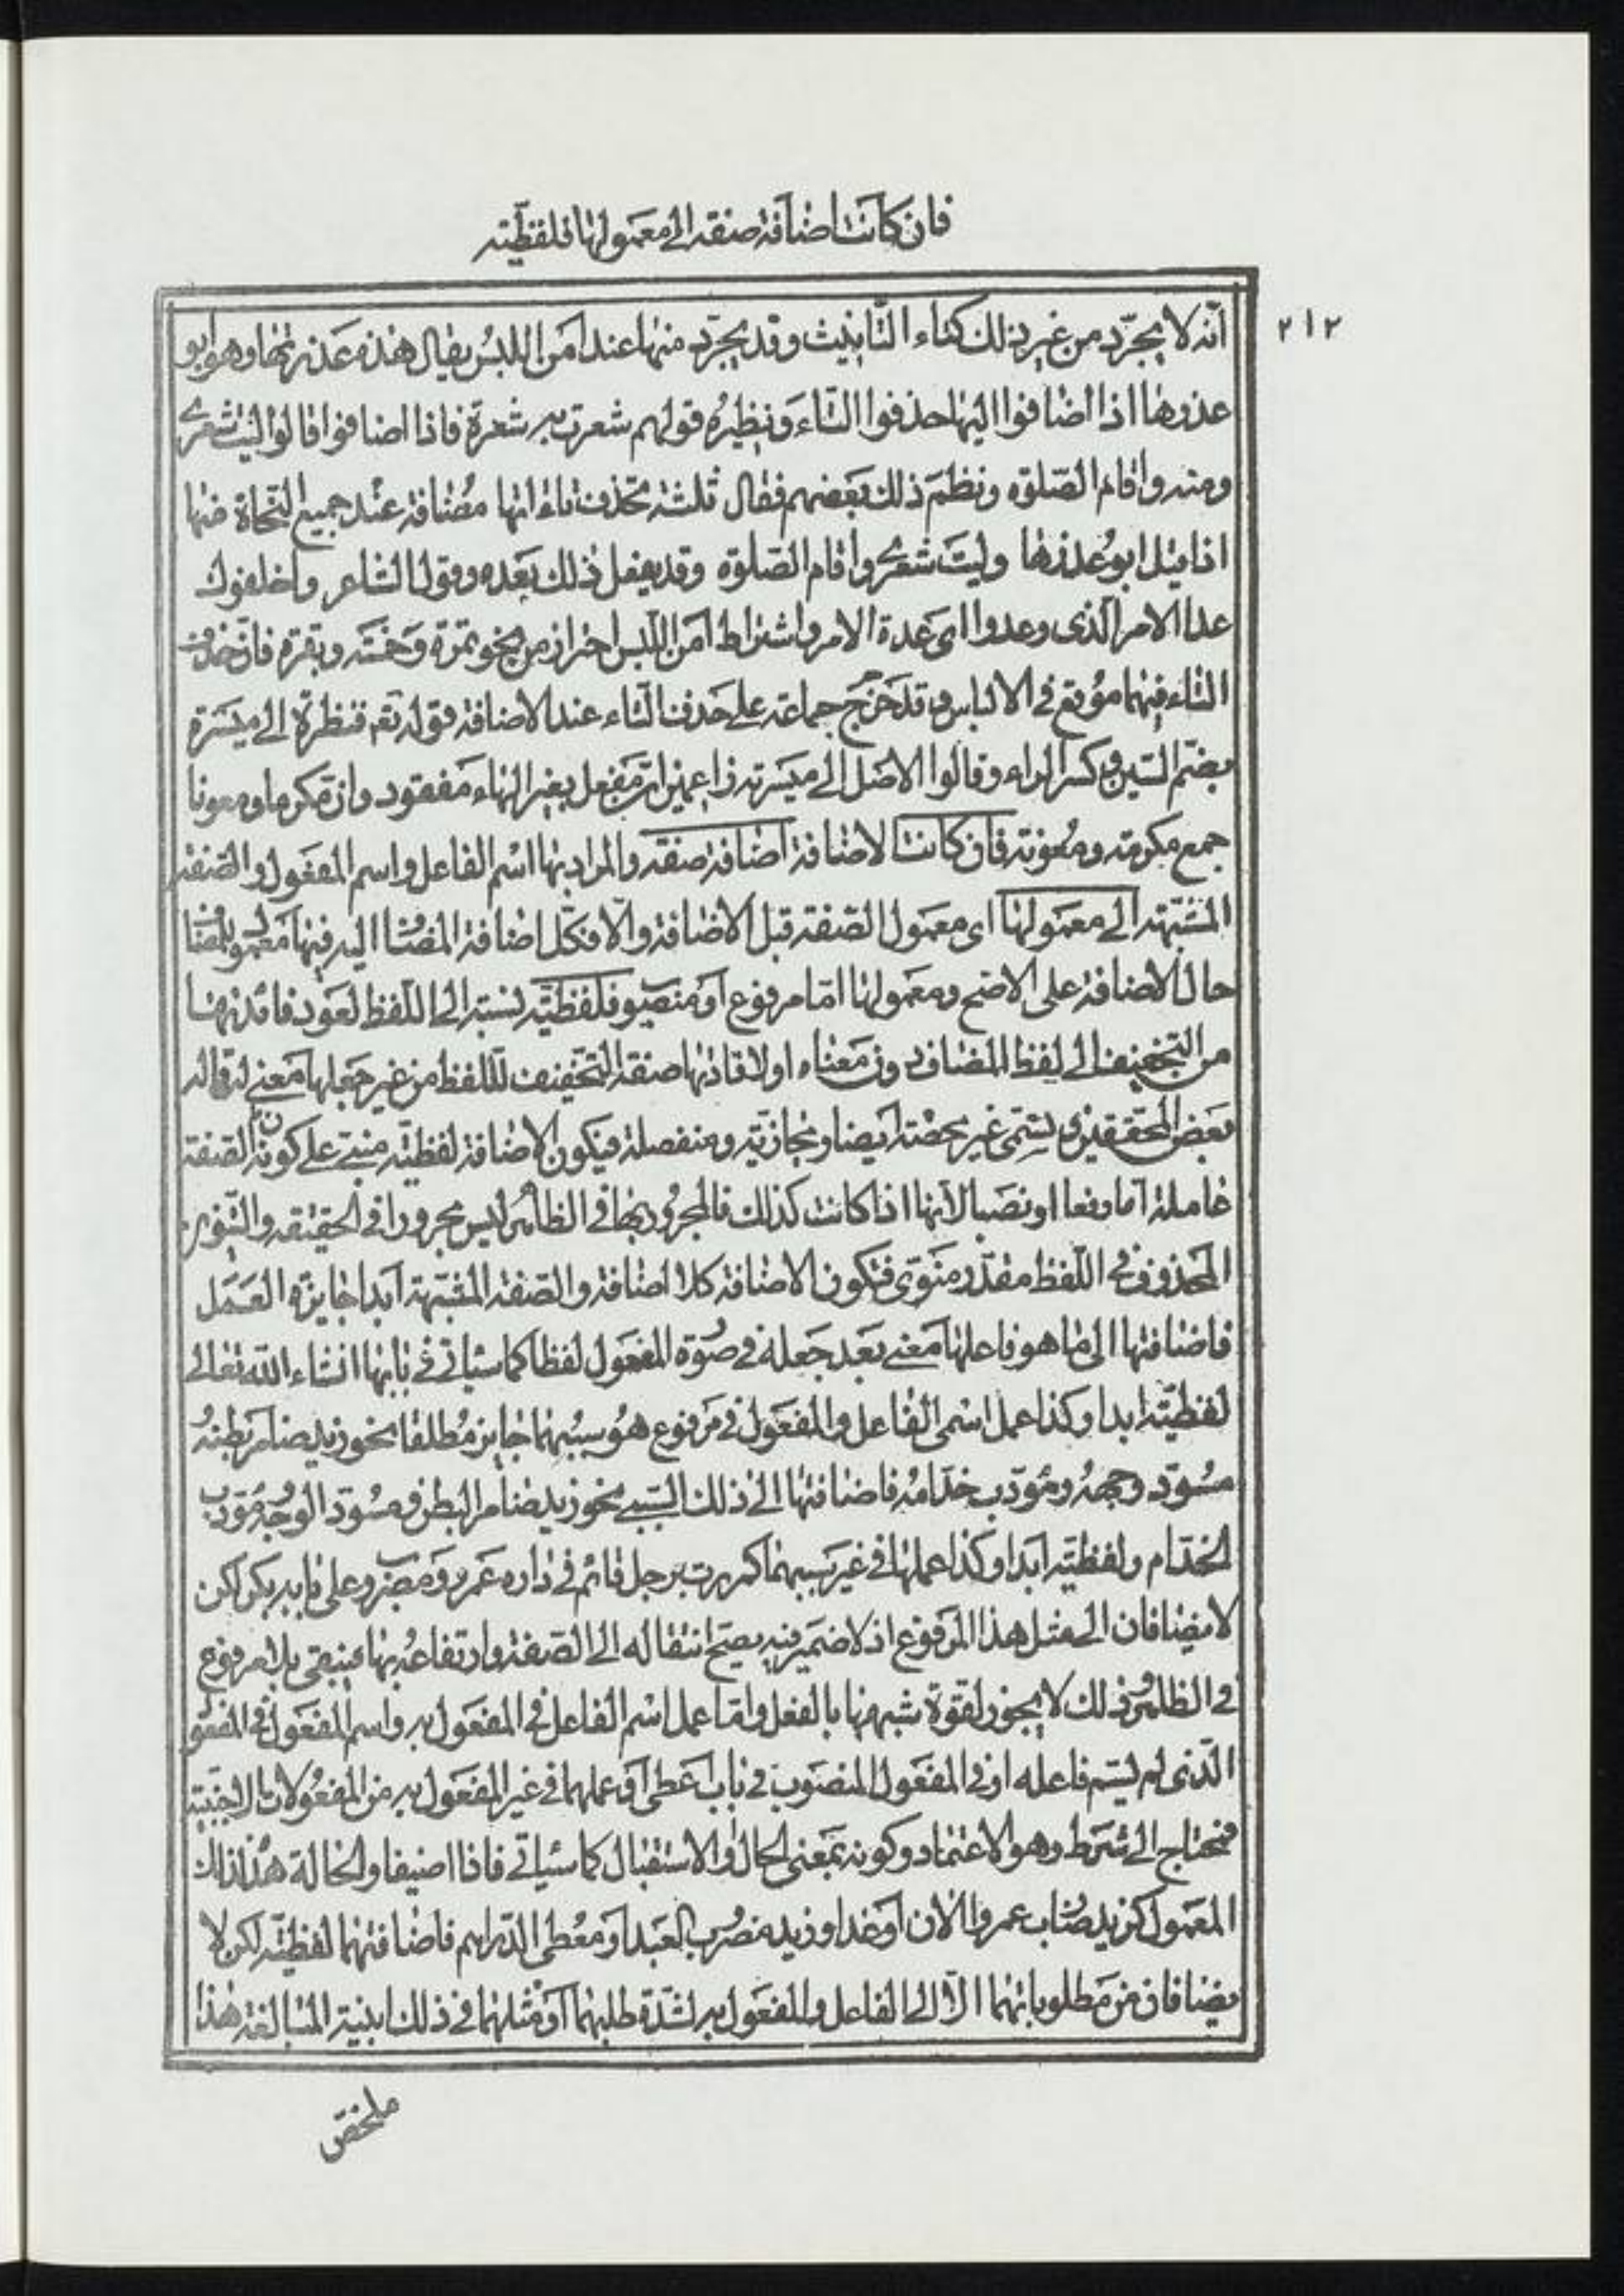 فان كانت اضافة صفة الى معمولها فلفظيّة
٢١٢
انّه لا يجرّد من غير ذلك كتاء التّانيث وقد يجرّد منها عند امن اللبس يقال هذه عذرتها وهو ابو
عذرها اذا اضافوا اليها حذفوا التّاء ونظيره قولهم شعرت به شعرة فاذا اضافوا قالوا ليت شعرى
ومنه واقام الصّلوة ونظم ذلك بعضهم فقال ثلثة تحذف تاءاتها مضافة عند جميع النّحاة منها
اذا قيل ابو عذرها وليت شعرى واقام الصّلوة وقد يفعل ذلك بعده وقول الشاعر واخلفوك
عدا الامر الّذى وعدوا اى عدة الامر واشتراط امن اللّبس احتراز من نحو تمرة وخمسة وبقرة فانّ حذف
التاء فيها موقع فى الالباس وقد خرّج جماعة على حذف التّاء عند الاضافة قوله تعم فنظرة الى ميسرة
بضمّ السّين وكسر الراء وقالوا الاصل الى ميسرته زاعمين انّ مفعل بغير الهاء مفقود وانّ مكرما ومعونا
جمع مكرمة ومعونة فان كانت الاضافة اضافة صفة والمراد بها اسم الفاعل واسم المفعول والصّفة
المشبّهة الى معمولها اى معمول الصّفة قبل الاضافة والّا فكلّ اضافة المضاف اليه فيها معمول للمضا
حال الاضافة على الاصح ومعمولها امّا مرفوع او منصوب فلفظيّة نسبة الى اللّفظ لعود فائدتها
من التّخفيف الى لفظ المضاف دون معناه او لافادتها صفة التّخفيف للّفظ من غير جعلها معنى له قاله
بعض المحقّقين وتسمّى غير محضة ايضا ومجازيّة ومنفصلة فيكون الاضافة لفظيّة مبنىّ على كون الصّفة
عاملة امّا رفعا او نصبا لانّها اذا كانت كذلك فالمجرور بها فى الظّاهر ليس مجرورا فى الحقيقة والتّنوين
المحذوف فى اللّفظ مقدّر منوىّ فتكون الاضافة كلا اضافة والصّفة المشبّهة ابدا جايزة العمل
فاضافتها الى ما هو فاعلها معنى بعد جعله فى صورة المفعول لفظا كما سياتى فى بابها انشاء الله تعالى
لفظيّة ابدا وكذا عمل اسمى الفاعل والمفعول فى مرفوع هو سببهما جايز مطلقا نحو زيد ضامر بطنه
مسودّ وجهه ومؤدّب خدّامه فاضافتها الى ذلك السّببى نحو زيد ضامر البطن ومسودّ الوجه ومؤدّب
الخدّام ولفظيّة ابدا وكذا عملها فى غير سببهما كمررت برجل قائم فى داره عمرو ومضروب على بابه بكر لكن
لا يضافان الى مثل هذا المرفوع اذ لا ضمير فيه يصحّ انتقاله الى الصّفة وارتفاعه بها فيبقى بلا مرفوع
فى الظّاهر وذلك لا يجوز لقوّة شبهها بالفعل وامّا عمل اسم الفاعل فى المفعول به واسم المفعول فى المفعو
الّذى لم يسمّ فاعله او فى المفعول المنصوب فى باب اعطى او عملهما فى غير المفعول به من المفعولات
فيحتاج الى شرط وهو الاعتماد وكونه بمعنى الحال والاستقبال كما سياتى فاذا اضيفا والحالة هذه لذلك
المعمول كزيد ضارب عمرو الان او غدا وزيد مضروب العبد او معطى الدّراهم فاضافتهما لفظيّة لكن لا
يضافان من مطلوباتهما الّا الى الفاعل والمفعول به لشدّة طلبهما او مثلهما فى ذلك ابنية المبالغة هذا
ملخّص